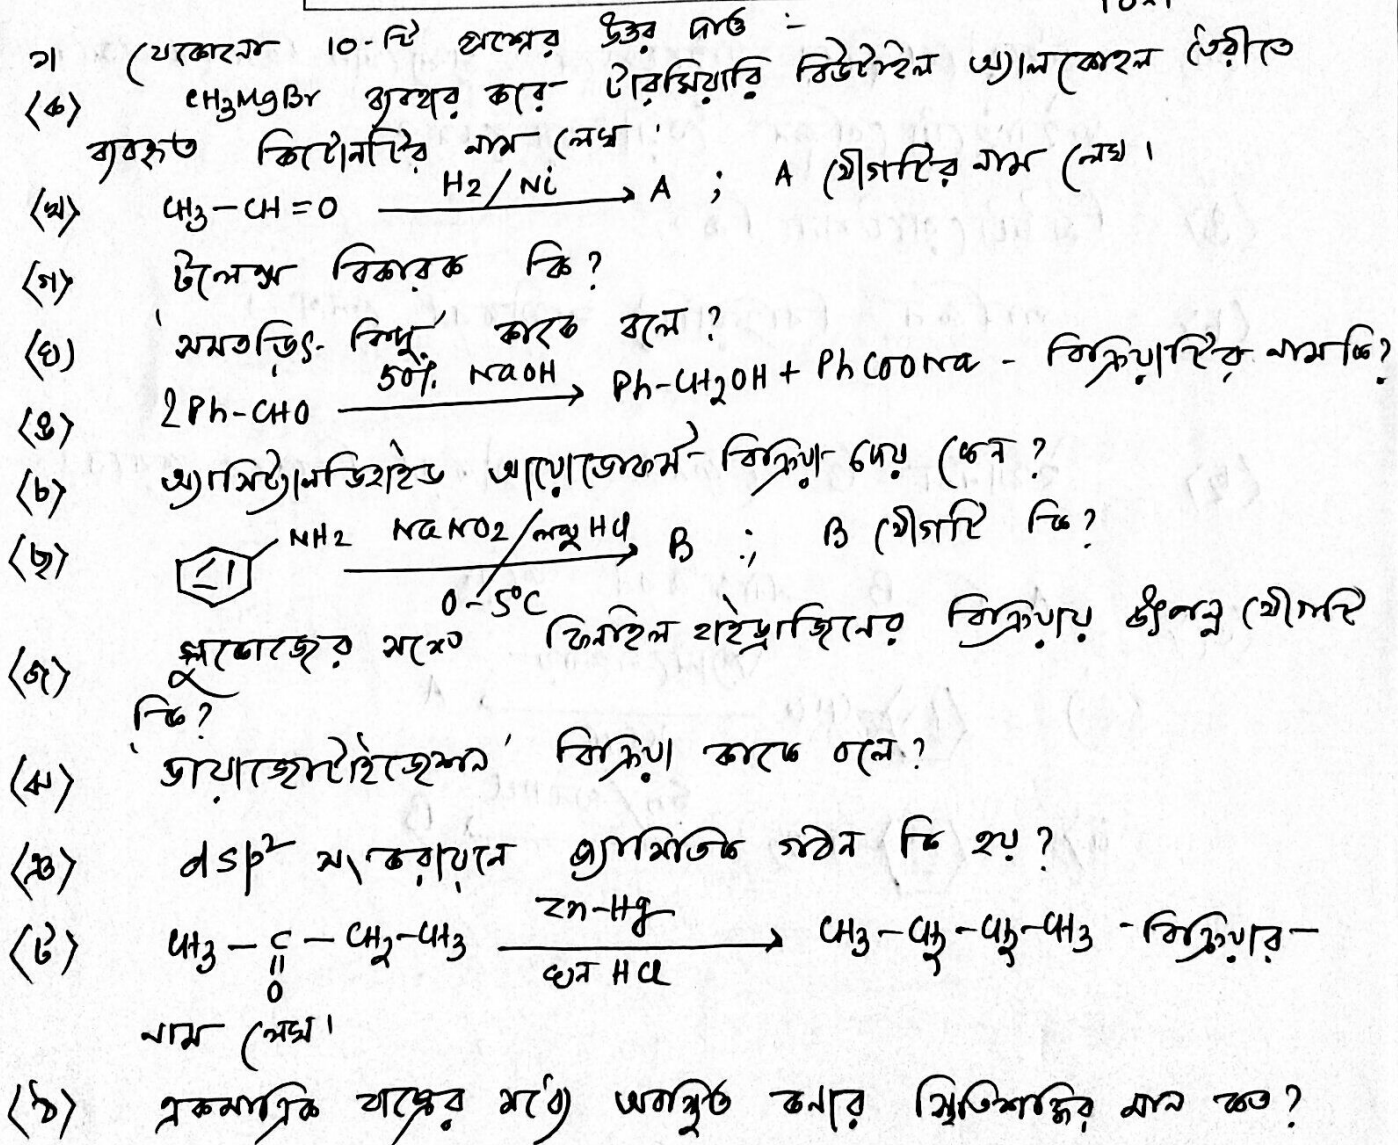 ১৷ যেকোনো 10-টি প্রশ্নের উত্তর দাও :-
(ক) CH3MgBr ব্যবহার করে টারসিয়ারি বিউটাইল অ্যালকোহল তৈরীতে
ব্যবহৃত কিটোনটির নাম লেখ।
(খ) CH3-CH=O H2/Ni → A ; A যৌগটির নাম লেখ।
(গ) টলেন্স বিকারক কি?
(ঘ) 'সমতড়িৎ- বিন্দু' কাকে বলে?
(ঙ) 2Ph-CHO 50% NaOH → Ph-CH2OH + PhCOONa - বিক্রিয়াটির নাম কি?
(চ) অ্যাসিট্যালডিহাইড আয়োডোফর্ম বিক্রিয়া দেয় কেন?
(ছ) NH2 NaNO2/লঘু HCl → B ; B যৌগটি কি?
0-5°C
(জ) গ্লুকোজের সঙ্গে ফিনাইল হাইড্রাজিনের বিক্রিয়ায় উৎপন্ন যৌগটি
কি?
(ঝ) 'ডায়াজোটাইজেশন' বিক্রিয়া কাকে বলে?
(ঞ) dsp² সংকরায়নে জ্যামিতিক গঠন কি হয়?
(ট) CH3-C-CH2-CH3 Zn-Hg → CH3-CH2-CH2-CH3 - বিক্রিয়ার
॥ ঘন HCl
O
নাম লেখ।
(ঠ) একমাত্রিক বাক্সের মধ্যে অবস্থিত কণার স্থিতিশক্তির মান কত?